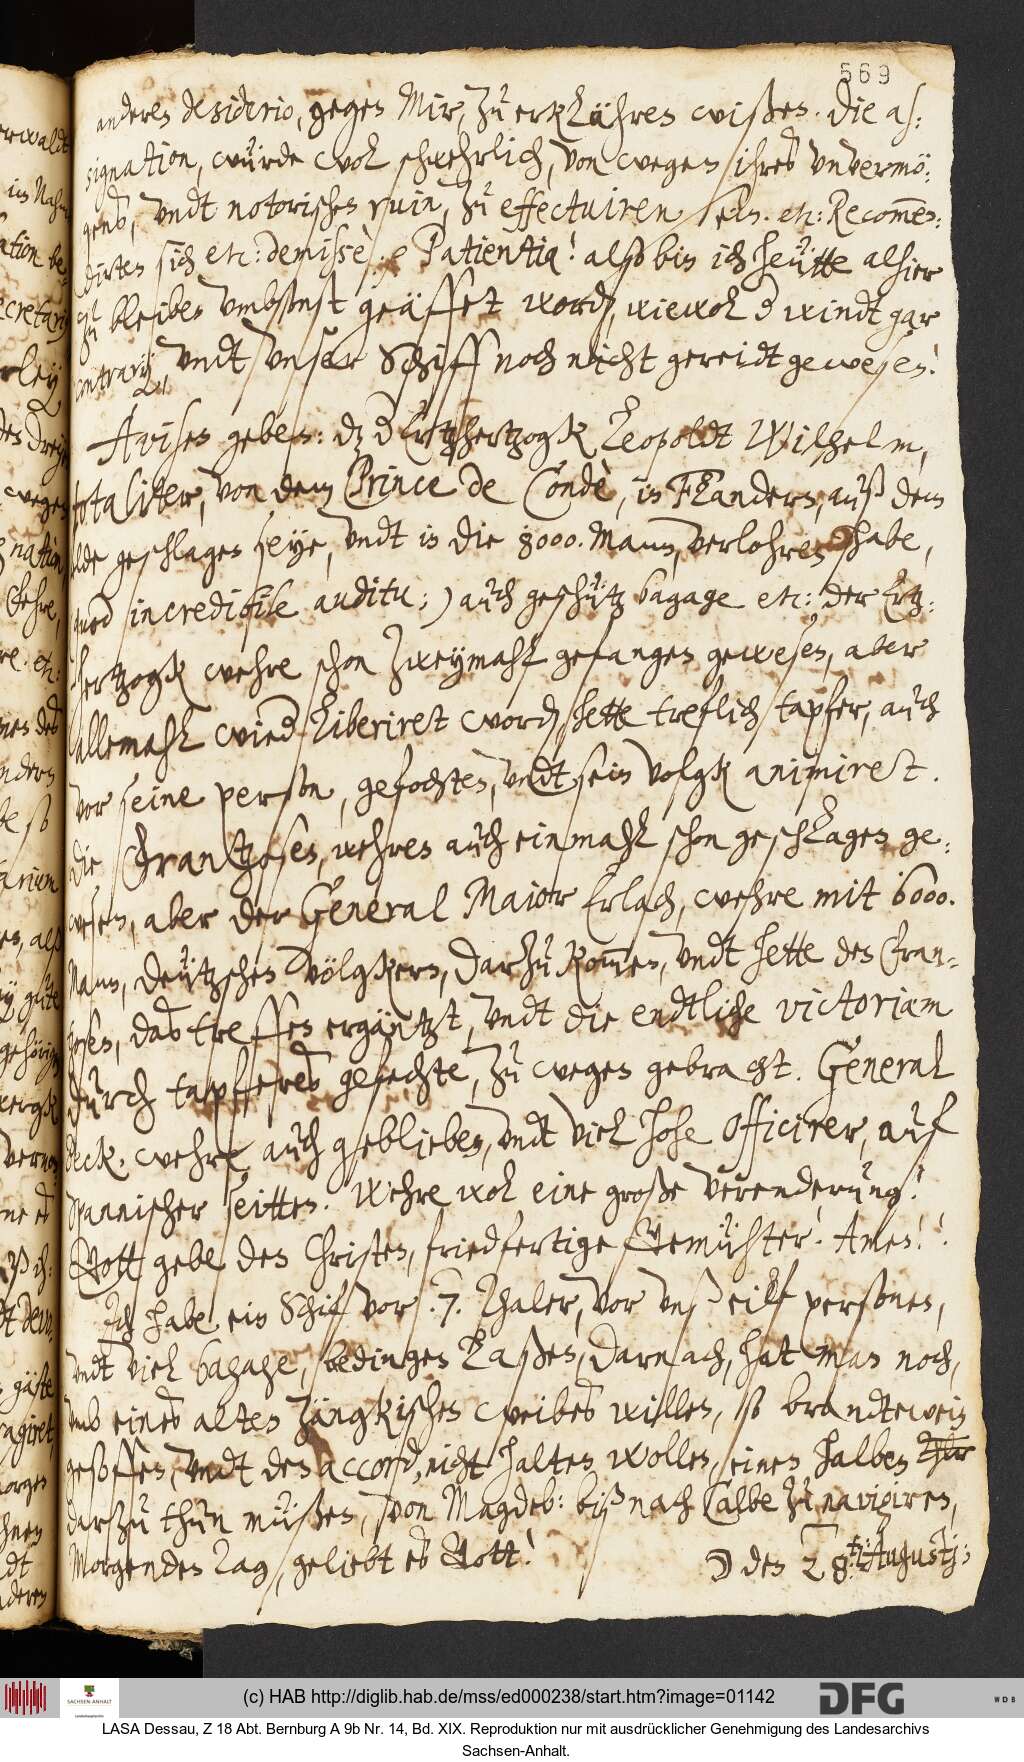 569
anderen desiderio, gegen Mir, zu erklähren wißen. Die as¬
signation, würde wol schwehrlich, von wegen ihres vnvermö¬
gens, vndt notorischen ruin, zu effectuiren sein. etc: Recommen¬
dirten sich etc: demissè. Patientia! also bin ich heütte alhier
zu bleiben vmbsonst geäffet worden, wiewol der windt gar
contrary, vndt vnser Schiff noch nicht gereidt gewesen!
Avisen geben: daß der Ertzhertzogk Leopoldt Wilhelm,
totaliter, von dem Prince de Condè, in Flandern, auß dem
felde geschlagen seye, vndt in die 8000. Mann, verlohren habe,
quod incredibile auditu;) auch geschütz bagage etc: der Ertz¬
hertzogk wehre schon zweymahl gefangen gewesen, aber
allemahl wieder liberiret worden, hette treflich tapfer, auch
vor seine person, gefochten, vndt sein volgk animiret.
Die Frantzosen, wehren auch einmahl schon geschlagen ge¬
wesen, aber der General Maior Erlach, wehre mit 6000.
Mann, deützschen völgkern, darzu kommen, vndt hette den Fran¬
zosen, das treffen ergäntzt, vndt die endtliche victoriam
durch tapfferes gefechte, zu wegen gebracht. General
Beck. wehre auch geblieben, vndt viel hohe Officirer, auf
Spannischer seitten. Wehre wol eine große verenderung!
Gott gebe den Christen, friedfertige Gemühter! Amen!
Ich habe ein Schif vor .7. Thaler, vor vnß eilf personen,
vndt viel bagage, bedingen laßen, darnach, hat man noch,
vmb eines alten zängkischen weibes willen, so brandtewein
gesoffen, vndt den accord, nicht halten wollen, einen halben Thlr
darzu thun müßen, von Magdeb: biß nach Calbe zu navigiren,
Morgenden Tag, geliebt es Gott!
☽ den 28.ten: Augustj:
(c) HAB http://diglib.hab.de/mss/ed000238/start.htm?image=01142
SACHSEN-ANHALT
DFG
WDB
LASA Dessau, Z 18 Abt. Bernburg A 9b Nr. 14, Bd. XIX. Reproduktion nur mit ausdrücklicher Genehmigung des Landesarchivs
Sachsen-Anhalt.